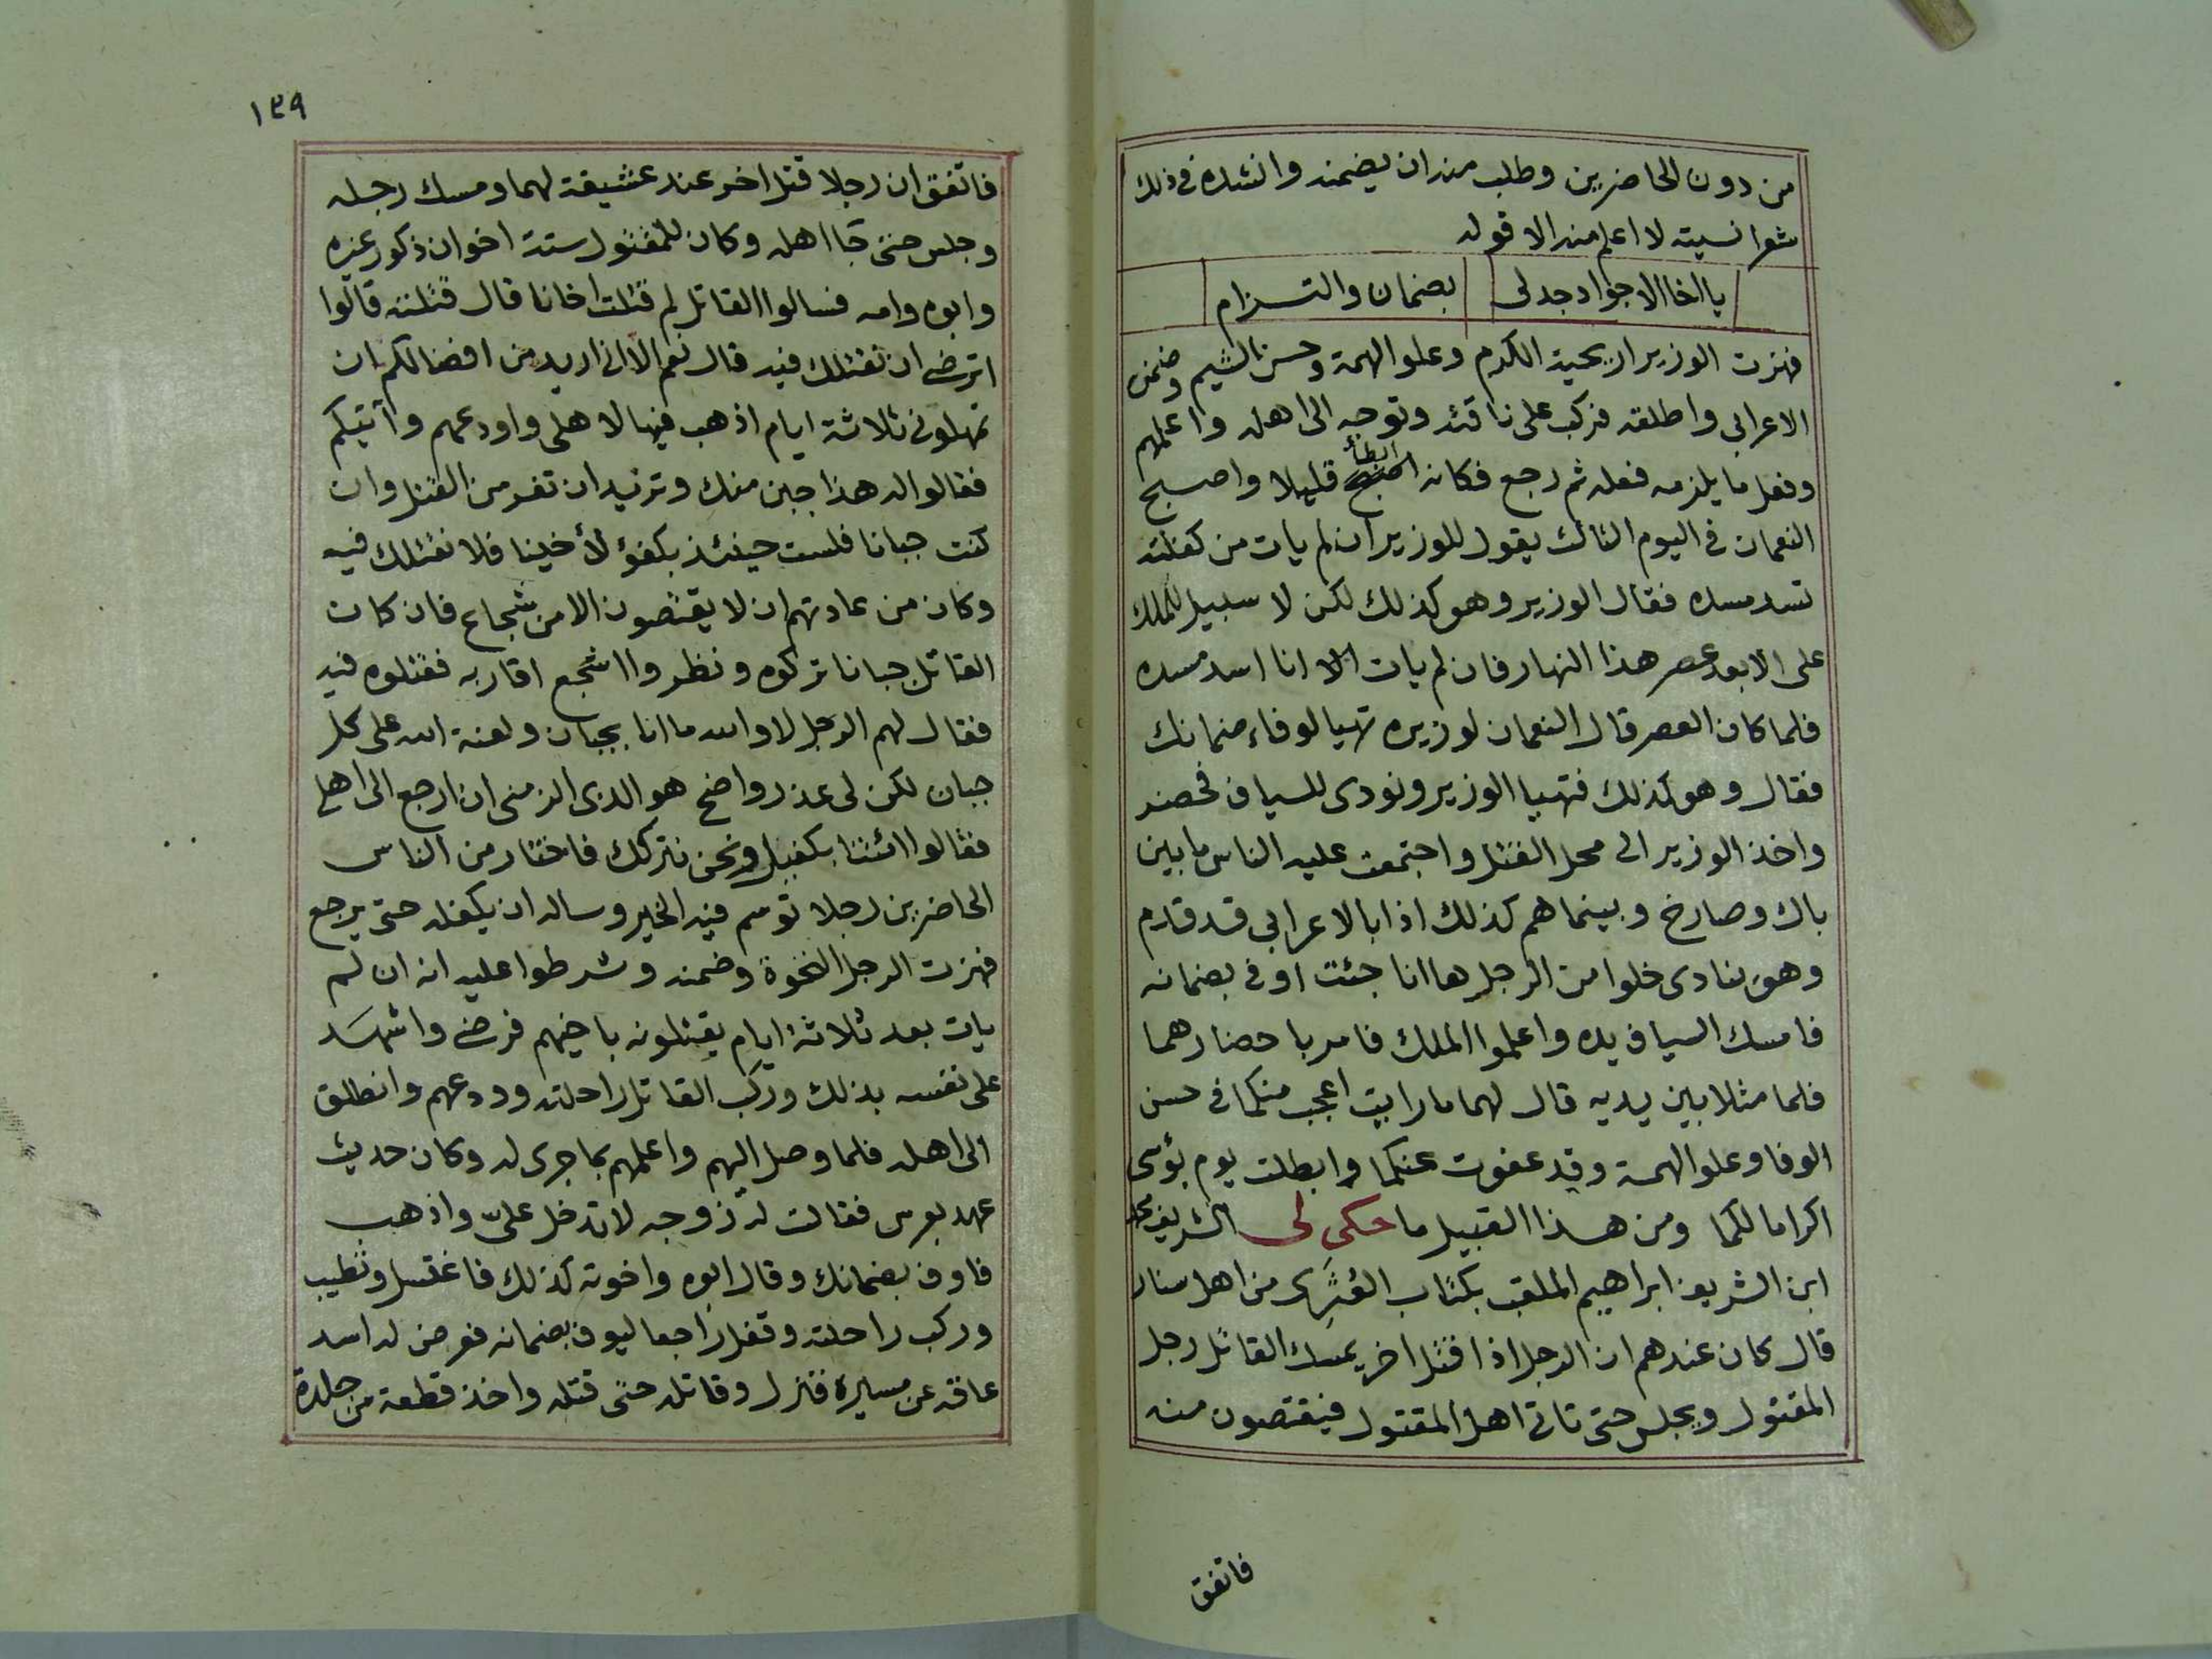 من دون الحاضرين وطلب منه ان يضمنه وانشده في ذلك
شعرا نسيته لا اعلم منه الا قوله
يا اخا الاجواد جد لى بضمان والتسزام
فهزت الوزير اريحية الكرم وعلو الهمة وحسن الشيم وضمن
الاعرابى واطلقه فركب على ناقته وتوجه الى اهله واعلمهم
وفعل ما يلزمه فعله ثم رجع فكانه ابطأ قليلا واصبح
النعمان فى اليوم الثالث يقول للوزير ان لم يات من كفلته
تسد مسده فقال الوزير وهو كذلك لكن لا سبيل للملك
على الا بعد عصر هذا النهار فان لم يات الا انا اسد مسده
فلما كان العصر قال النعمان لوزيره تهيا لوفاء ضمانك
فقال وهو كذلك فتهيا الوزير ونودى للسياف فحضر
واخذ الوزير الى محل القتل واجتمعت عليه الناس ما بين
باك وصارخ وبينما هم كذلك اذا بالاعرابى قد قادم
وهو ينادى خلوا من الرجل ها انا جئت اوفى بضمانه
فامسك السياف يده واعلموا الملك فامر باحضارهما
فلما مثلا بين يديه قال لهما ما رايت اعجب منكما فى حسن
الوفا وعلو الهمة وقد عفوت عنكما وابطلت يوم بؤسى
اكراما لكما ومن هذا القبيل ما حكى لى الشريف محمد
ابن الشريف ابراهيم الملقب بكتاب العُشَرِى من اهل سنار
قال كان عندهم ان الرجل اذا قتل اخر يمسك القاتل رجل
المقتول ويجلس حتى تاتى اهل المقتول فيقتصون منه
فاتفق
١٢٩
فاتفق ان رجلا قتل اخر عند عشيقة لهما ومسك رجله
وجلس حتى جآ اهله وكان للمقتول ستة اخوان ذكور غيره
وابوه وامه فسالوا القاتل لم قتلت اخانا قال قتلته قالوا
اترضى ان نقتلك فيه قال نعم الا انى اريد من افضالكم ان
تمهلونى ثلاثة ايام اذهب فيها لاهلى واودعهم وآتيكم
فقالوا له هذا جبن منك وتريد ان تفر من القتل وان
كنت جبانا فلست حينئذ بكفؤ لأخينا فلا نقتلك فيه
وكان من عادتهم ان لا يقتصون الا من شجاع فان كان
القاتل جبانا تركوه ونظروا اشجع اقاربه فقتلوه فيه
فقال لهم الرجل لا والله ما انا بجبان ولعنة الله على كل
جبان لكن لى عذر واضح هو الذى الزمنى ان ارجع الى اهلى
فقالوا ائتنا بكفيل ونحن نتركك فاختار من الناس
الحاضرين رجلا توسم فيه الخير وساله ان يكفله حتى يرجع
فهزت الرجل النخوة وضمنه وشرطوا عليه انه ان لم
يات بعد ثلاثة ايام يقتلونه باخيهم فرضى واشهد
على نفسه بذلك وركب القاتل راحلته وودعهم وانطلق
الى اهله فلما وصل اليهم واعلمهم بما جرى له وكان حديث
عهد بعرس فقالت له زوجه لا تدخل علىّ واذهب
فاوف بضمانك وقال ابوه واخوته كذلك فاغتسل وتطيب
وركب راحلته وقفل راجعا ليوف بضمانه فعرض له اسد
عاقه عن مسيره فنزل وقاتله حتى قتله واخذ قطعة من جلدة